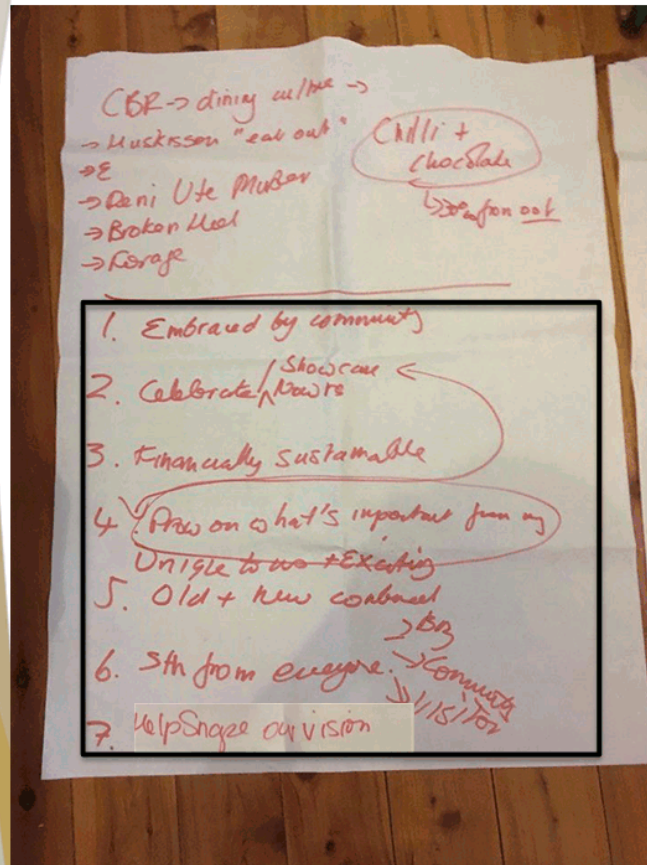 CBR → dining culture →
→ Huskisson "eat out"
→ E
→ Deni Ute Muster
→ Broken Heel
→ Forage
Chilli +
chocolate
1. Embraced by community
2. Celebrate / Showcase Nowra
3. Financially sustainable
4. Draw on what's important from
Unique to us + Exciting
5. Old + new combined
6. Sth from everyone.
→ Biz
→ Community
→ Visitor
7. Help Shape our vision